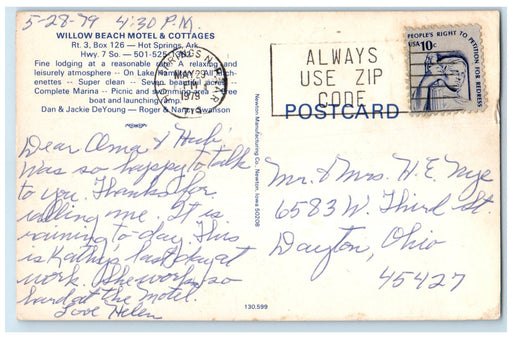 5-28-79 4:30 P.M.
WILLOW BEACH MOTEL & COTTAGES
Rt. 3, Box 126 — Hot Springs, Ark.
Hwy. 7 So. — 501-525-
Fine lodging at a reasonable A relaxing and
leisurely atmosphere -- On Lake All
enettes -- Super clean -- Seven beautiful acres
Complete Marina -- Picnic and swimming area
boat and launching
Dan & Jackie DeYoung — Roger & Nancy Swanson
MAY 29
PM
1979
ALWAYS
USE ZIP
CODE
PEOPLE'S RIGHT TO PETITION FOR REDRESS
USA 10c
POSTCARD
Newton Manufacturing Co. Newton, Iowa 50208
Dear Oma & Hub,
Was so happy to talk
to you. Thanks for
calling me. It is
raining to-day. This
is Kathy's last day at
work. She works so
hard at the motel.
Love Helen
Mr. & Mrs. H.E. Nye
6583 W. Third St.
Dayton, Ohio
45427
130,599